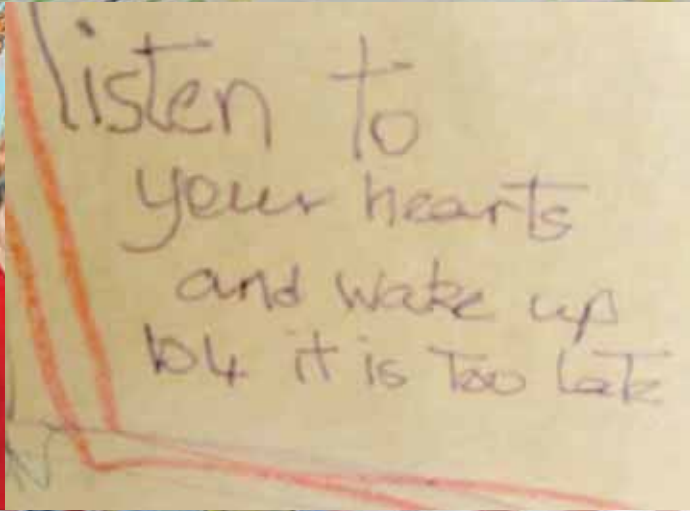 listen to
your hearts
and wake up
b4 it is Too late